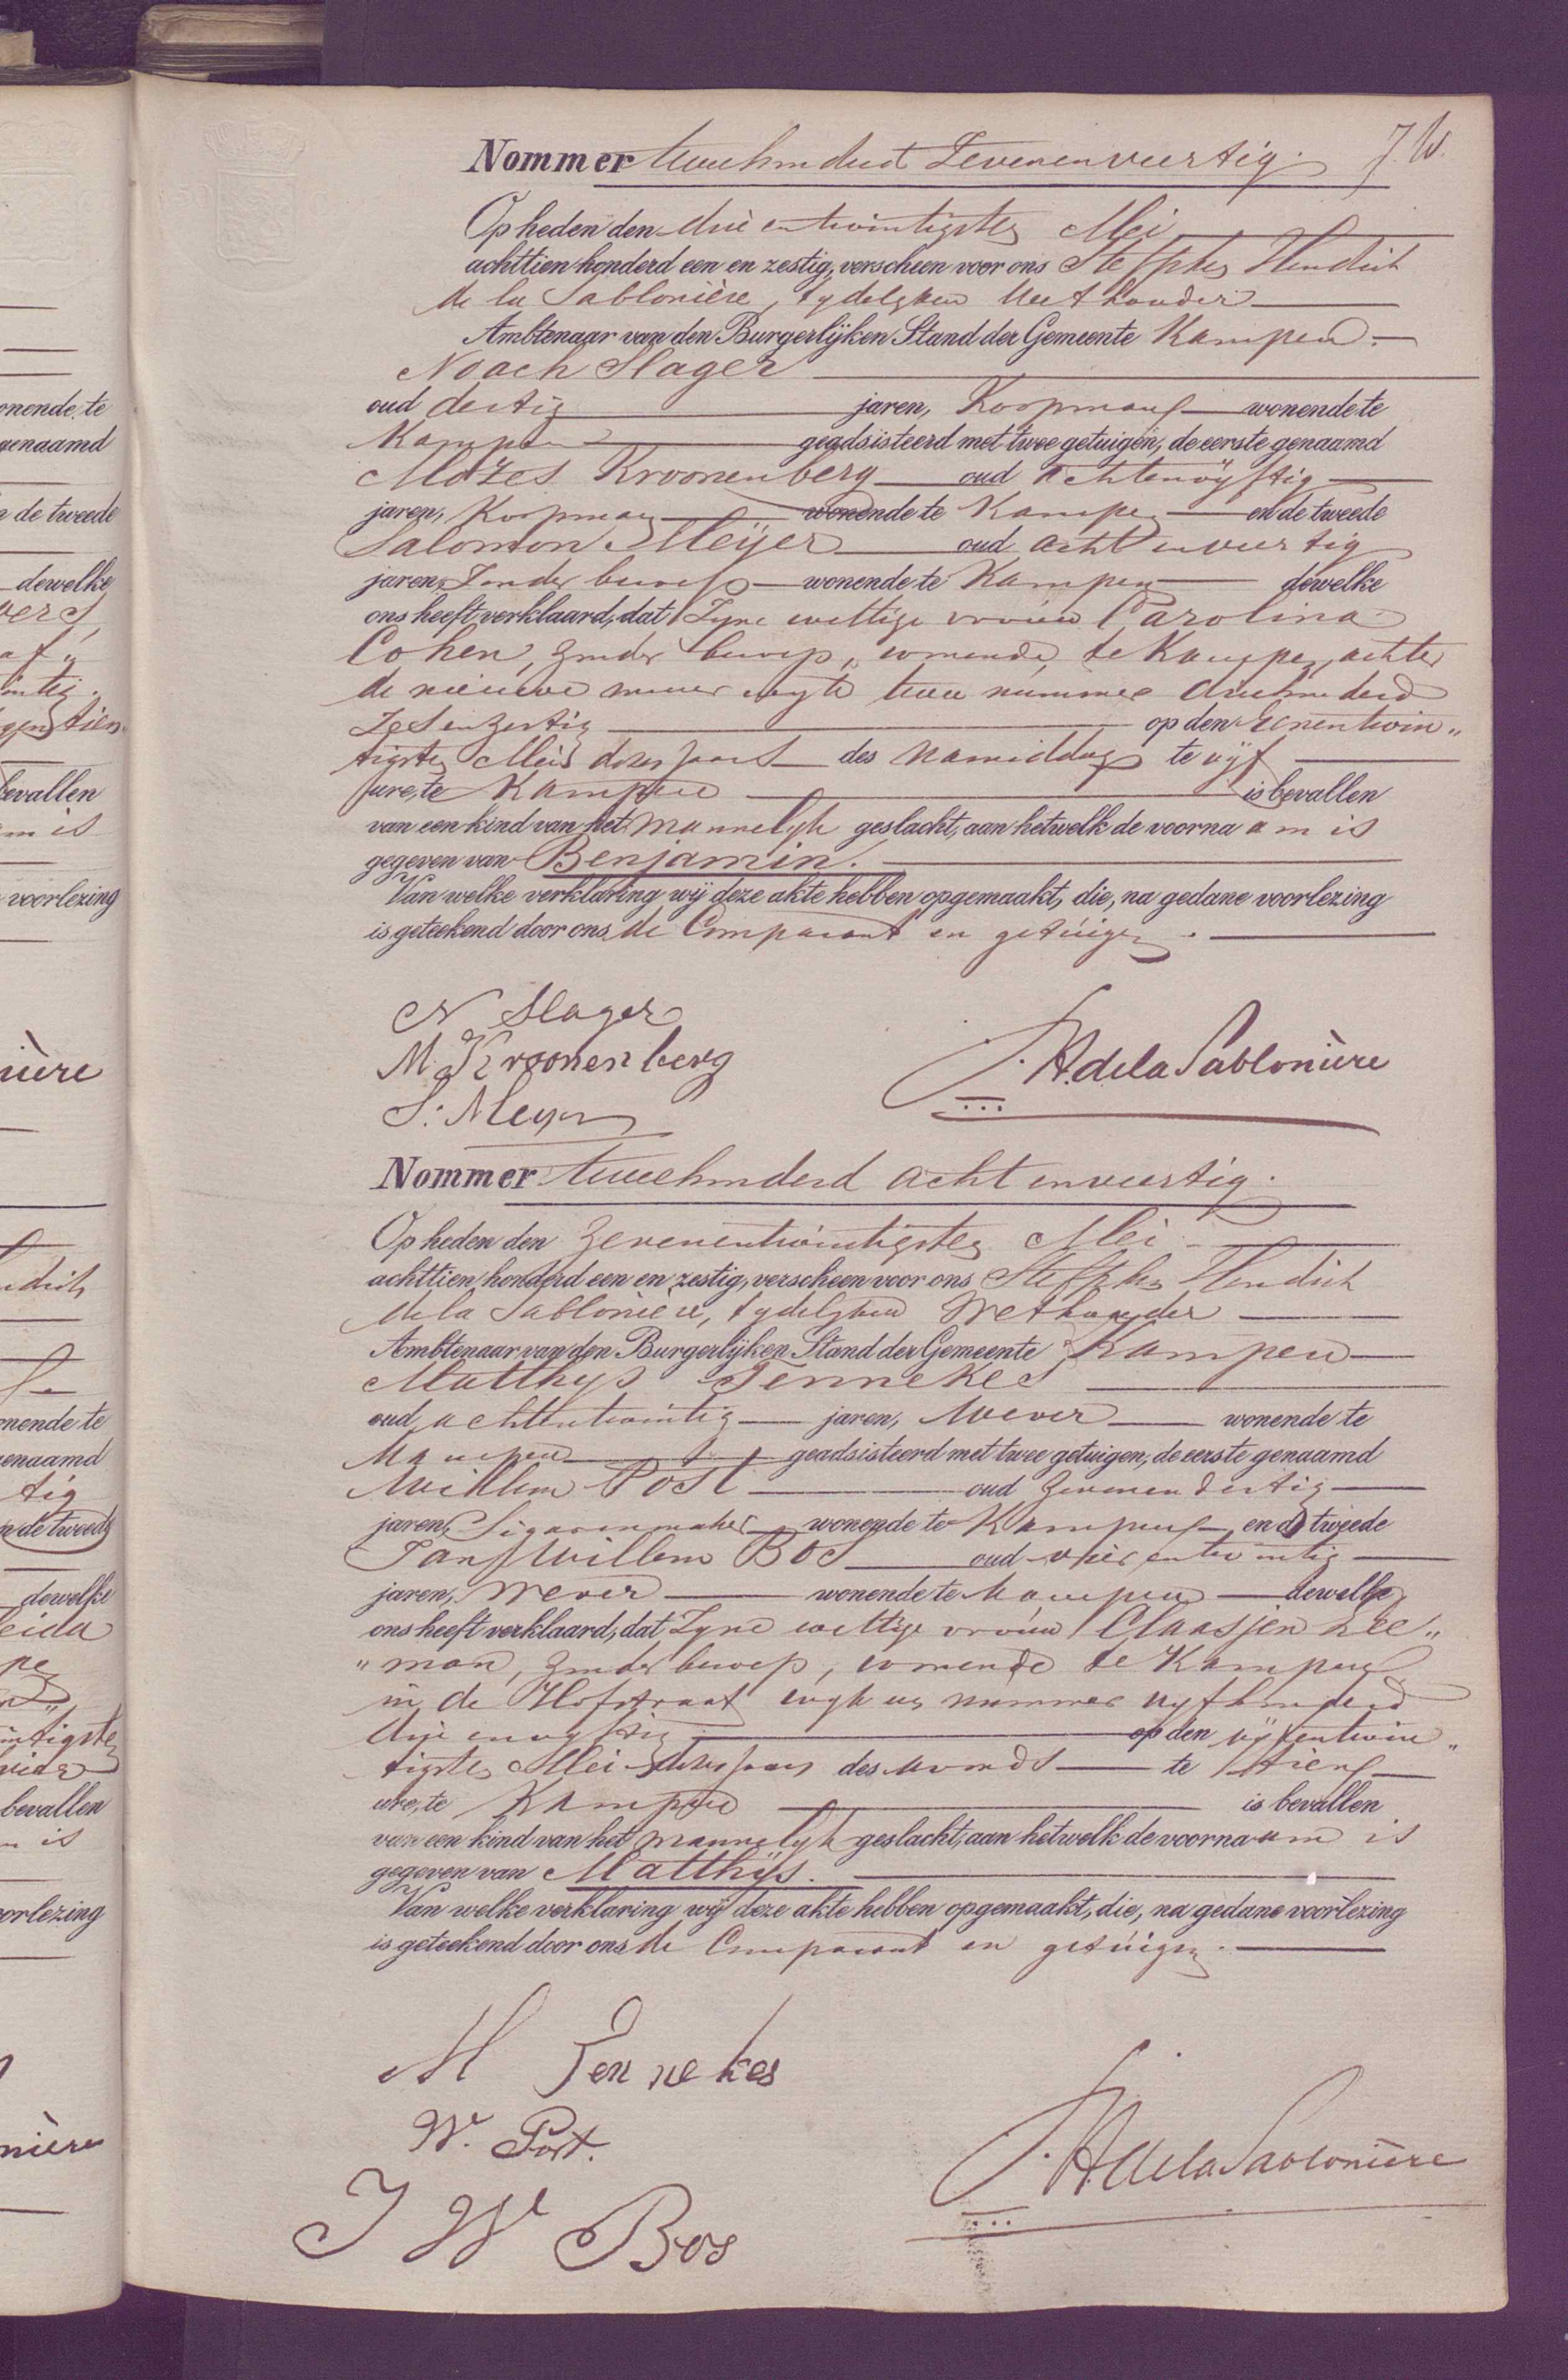 Nommer tweehonderd Zevenenveertig. J. W.
Op heden den drie en twintigsten Mei
achttien honderd een en zestig, verscheen voor ons Steffhes Hendrik
de la Sablonière, tydelyken Wethouder
Ambtenaar van den Burgerlijken Stand der Gemeente Kampen.
Noach Slager
oud dertig jaren, Koopman wonende te
Kampen geadsisteerd met twee getuigen, de eerste genaamd
Mozes Kroonenberg oud achtenvijftig
jaren, Koopman wonende te Kampen en de tweede
Salomon Meijer oud acht enveertig
jaren, Zonder beroep wonende te Kampen dewelke
ons heeft verklaard, dat Zyne wettige vrouw Carolina
Cohen, zonder beroep, wonende te Kampen, achter
de nieuwe muur wyk twee nummer driehonderd
Zesenzestig op den Eenentwin„
tigsten Mei dezes jaars des namiddags te vijf
ure, te Kampen is bevallen
van een kind van het mannelyk geslacht, aan hetwelk de voornaam is
gegeven van Benjamin.
Van welke verklaring wij deze akte hebben opgemaakt, die, na gedane voorlezing
is geteekend door ons de Comparant en getuigen.
N Slager
M. Kroonenberg
S. Meyer
S. H. de la Sablonière
Nommer tweehonderd acht enveertig.
Op heden den zevenentwintigsten Mei
achttien honderd een en zestig, verscheen voor ons Steffhes Hendrik
de la Sablonière, tydelyken Wethouder
Ambtenaar van den Burgerlijken Stand der Gemeente Kampen
Matthys Tennekes
oud achtentwintig jaren, Wever wonende te
Kampen geadsisteerd met twee getuigen, de eerste genaamd
Willem Post oud zevenendertig
jaren, Sigarenmaker wonende te Kampen en de tweede
Jan Willem Bos oud vier entwintig
jaren, Wever wonende te Kampen dewelke
ons heeft verklaard, dat Zyne wettige vrouw Claasjen Zee„
„man, zonder beroep, wonende te Kampen
in de Hofstraat wyk een nummer vyfhonderd
drie envyftig op den vijfentwin„
tigsten Mei dezes jaars des avonds te tien
ure, te Kampen is bevallen
van een kind van het mannelyk geslacht, aan hetwelk de voornaam is
gegeven van Matthijs.
Van welke verklaring wij deze akte hebben opgemaakt, die, na gedane voorlezing
is geteekend door ons de Comparant en getuigen.
M Tennekes
W. Post.
J W Bos
S. H. de la Sablonière